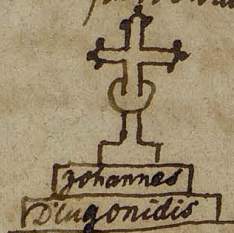 Johannes
Dlugonidis